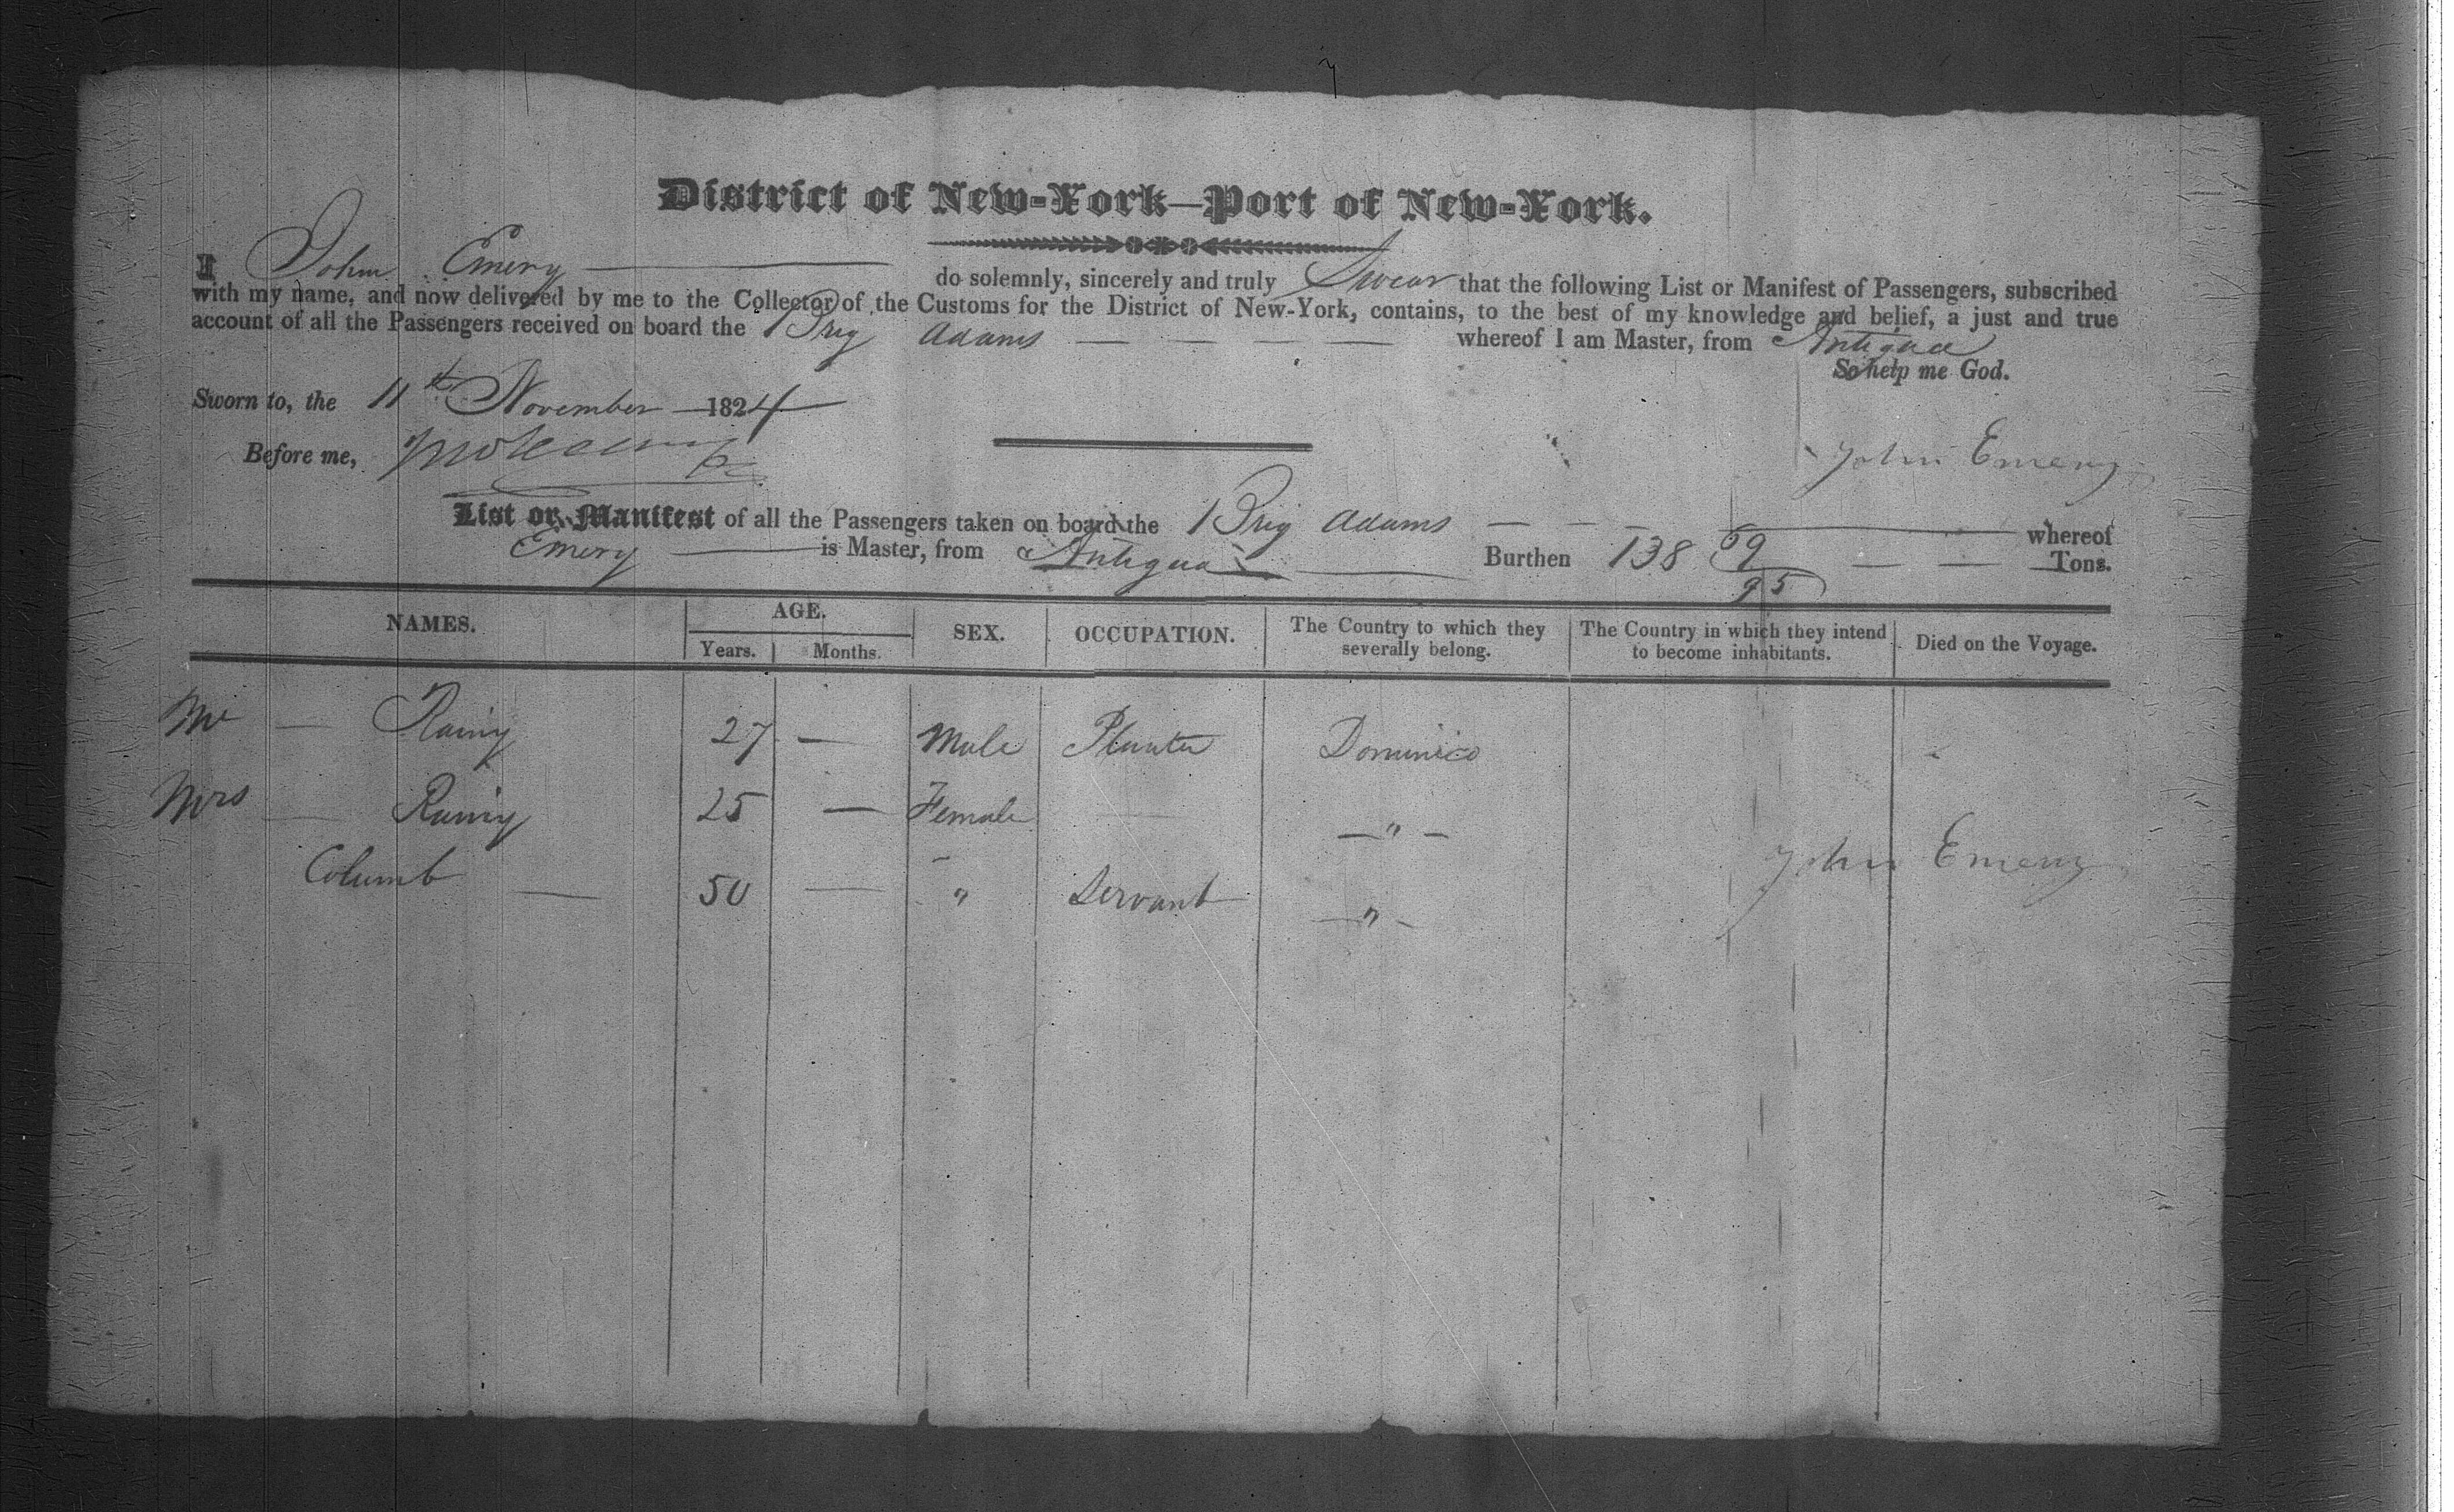 District of New-York—Port of New-York.
I John Emery do solemnly, sincerely and truly Swear that the following List or Manifest of Passengers, subscribed
with my name, and now delivered by me to the Collector of the Customs for the District of New-York, contains, to the best of my knowledge and belief, a just and true
account of all the Passengers received on board the Brig Adams — — — — whereof I am Master, from Antigua
So help me God.
Sworn to, the 11th November 1824
Before me,
John Emery
List or Manifest of all the Passengers taken on board the Brig Adams — — — whereof
Emery is Master, from Antigua Burthen 138 69/95 — — Tons.
NAMES. AGE. SEX. OCCUPATION. The Country to which they severally belong. The Country in which they intend to become inhabitants. Died on the Voyage.
Years. Months.
Mr — Rainy 27 — Male Planter Dominico
Mrs — Rainy 25 — Female — — " —
Columb — 50 — " Servant — " -
John Emery